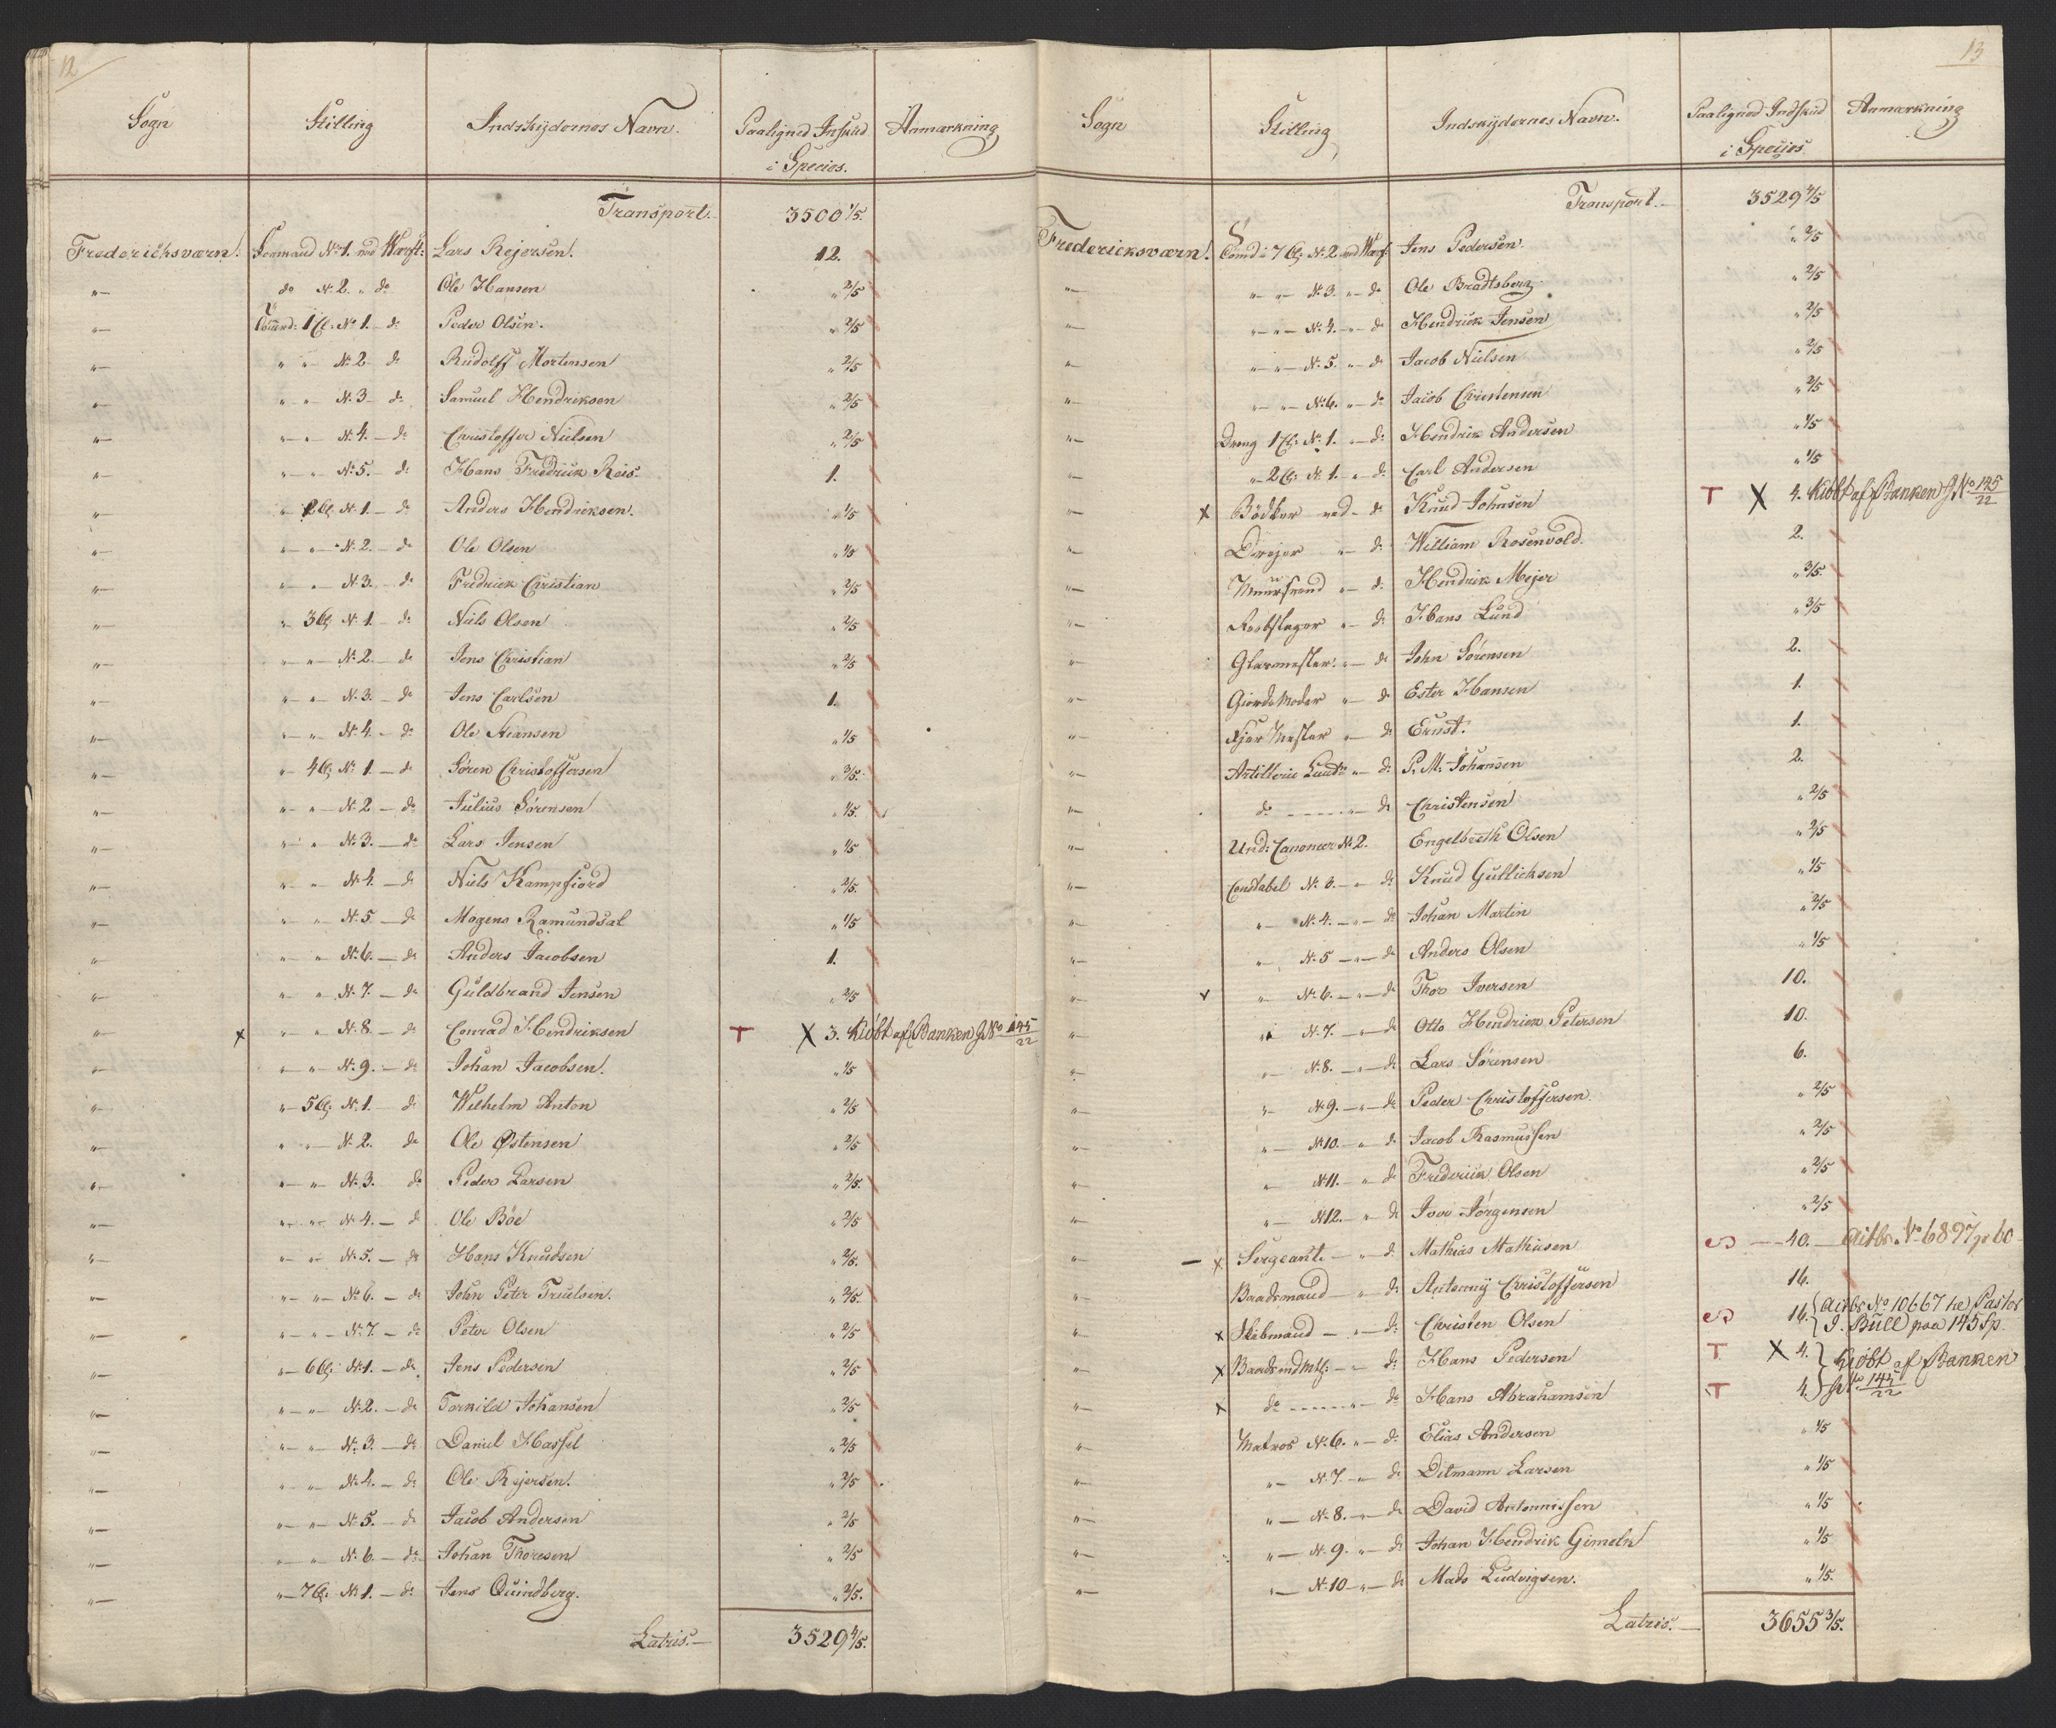 12
Sogn Stilling Indskydernes Navn. Paaligned Inskud i Species. Anmærkning
Transport. 3500 1/5.
Fredericksværn. Formand No 1. ved Værft: Lars Rejersen. 12.
"— do No 2. " do Ole Hansen " 2/5
"— 1 Cl: No 1. — do Peder Olsen. " 2/5
"— " " No 2 — do Rudolff Mortensen " 2/5
"— " " No 3 — do Samuel Hendriksen " 2/5
"— " " No 4. — do Christoffer Nielsen " 2/5
"— " " No 5. — do Hans Fredrick Reis. 1.
"— " 2 Cl: No 1. — do Anders Hendriksen. " 1/5
"— " " No 2. — do Ole Olsen " 1/5
"— " " No 3. — do Fredrick Christian " 2/5
"— " 3 Cl: No 1. — do Niels Olsen " 2/5
"— " " No 2. — do Jens Christian " 2/5
"— " " No 3. — do Jens Carlsen 1.
"— " " No 4. — do Ole Hansen " 1/5
"— " 4 Cl: No 1. — do Søren Christoffersen " 3/5.
"— " " No 2 — do Julius Sørensen " 1/5.
"— " " No 3. — do Lars Jensen " 1/5
"— " " No 4. — do Niels Kampfiord " 2/5.
"— " " No 5 — do Mogens Ramundsal " 1/5
"— " " No 6. — do Anders Jacobsen 1.
"— " " No 7. — do Guldbrand Jensen " 2/5
"— x " " No 8. — do Conrad Hendriksen T X 3. Kiöbt af Banken J No 145/22
"— " " No 9. — do Johan Jacobsen. " 1/5
"— " 5 Cl: No 1. — do Wilhelm Anton " 2/5
"— " " No 2. do Ole Østensen " 2/5
"— " " No 3. do Peder Larsen " 2/5.
"— " " No 4. — do Ole Böe " 2/5
"— " " No 5. — do Hans Knudsen " 2/5.
"— " " No 6. — do John Peter Truelsen. " 2/5.
"— " " No 7. — do Peter Olsen " 2/5
"— " 6 Cl: No 1. — do Jens Pedersen " 2/5
"— " " No 2. — do Torkild Johansen " 2/5
"— " " No 3. — do Daniel Hassel " 2/5
"— " " No 4. — do Ole Rejersen. " 2/5
"— " " No 5. — do Jacob Andersen " 2/5
"— " " No 6. — do Johan Thoresen " 2/5
"— " 7 Cl: No 1. — do Jens Quindberg. " 2/5.
Latris. — 3529 4/5.
13
Sogn Stilling Indskydernes Navn. Paalignod Indskud i Specjes. Anmærkning
Transport. — 3529 4/5
Fredericksværn. 7 Cl: No 2. ved Værf: Jens Pedersen. " 2/5
"— " " No 3. " do Ole Bradtsberg " 2/5
"— " " No 4. " do Hendrick Jensen " 2/5
"— " " No 5. " do Jacob Nielsen " 2/5
"— " " No 6. " do Jacob Christensen " 2/5
"— Dreng 1 Cl: No 1. " do Hendrik Andersen " 1/5
"— " 2 Cl: No 1. " do Carl Andersen " 1/5
"— x Bödker ved — do Knud Johnsen T X 4. Kiöbt af Banken J No 145/22
"— Dreyer " do William Rosenvold. 2.
"— Muursvend " do Hendrik Mejer " 3/5.
"— Reebslager " do Hans Lund " 3/5
"— Glarmester " do John Sørensen 2.
"— Giordemoder " do Ester Hansen 1.
"— Mester " do Ernst. 1.
"— Artillerie " do P. M. Johansen 2.
"— do " do Christensen " 2/5
"— Und: Canoneer No 2. Engelbreth Olsen " 2/5
"— Constabel No 3. " do Knud Gullichsen " 1/5
"— " No 4. — " do Johan Martin " 2/5
"— " No 5 — " do Anders Olsen " 1/5
"— v " No 6. — " do Thor Iversen 10.
"— " No 7. — " do Otto Hendrick Petersen 10.
"— " No 8. — " do Lars Sørensen 6.
"— " No 9. — " do Peder Christoffersen. " 2/5
"— " No 10. — " do Jacob Rasmussen " 2/5
"— " No 11. — " do Frederick Olsen " 2/5
"— " No 12. — " do Iver Jörgensen " 2/5
"— x Sergeant — " do Mathias Mathiesen S — 40. — No 6897 60
"— Baadsmand — " do Antonny Christoffersen 16.
"— x Skibmand — " do Christen Olsen S 16. { No 10667 Pastor J. Bull paa 145 Sp.
"— x Baadsmd Mth: — do Hans Pedersen T X 4. } Kiöbt af Banken
"— x do " do Hans Abrahamsen T 4. } No 145/22
"— Matros No 6. " do Elias Andersen " 1/5
"— " No 7. " do Ditmann Larsen " 1/5
"— " No 8. " do David Antonnissen " 1/5
"— " No 9. " do Johan Hendrik Gimeln " 1/5
"— " No 10 — " do Mads Ludvigsen. " 1/5.
Latris. — 3655 3/5.